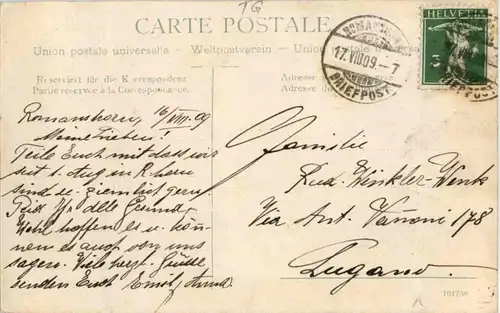 TG
CARTE POSTALE
Union postale universelle - Weltpostverein - Union postale
Reserviert für die Korrespondenz
Partie réservée à la Correspondance.
Adresse
HELVETIA
5
ROMANSHORN
17.VIII.09.-7
BRIEFPOST
Romanshorn, 16/VIII-09
Meine Lieben!
Teile Euch mit dass wir
seit 1. Aug in R'horn
sind u. ziemlich gern.
Seid Ihr alle Gesund,
Wohl hoffen es u. kön-
nen es auch von uns
sagen. Viele herzl. Grüsse
senden Euch Emil, Anna
Familie
Rud. Winkler-Wenk
Via Ant. Vanoni 178
Lugano.